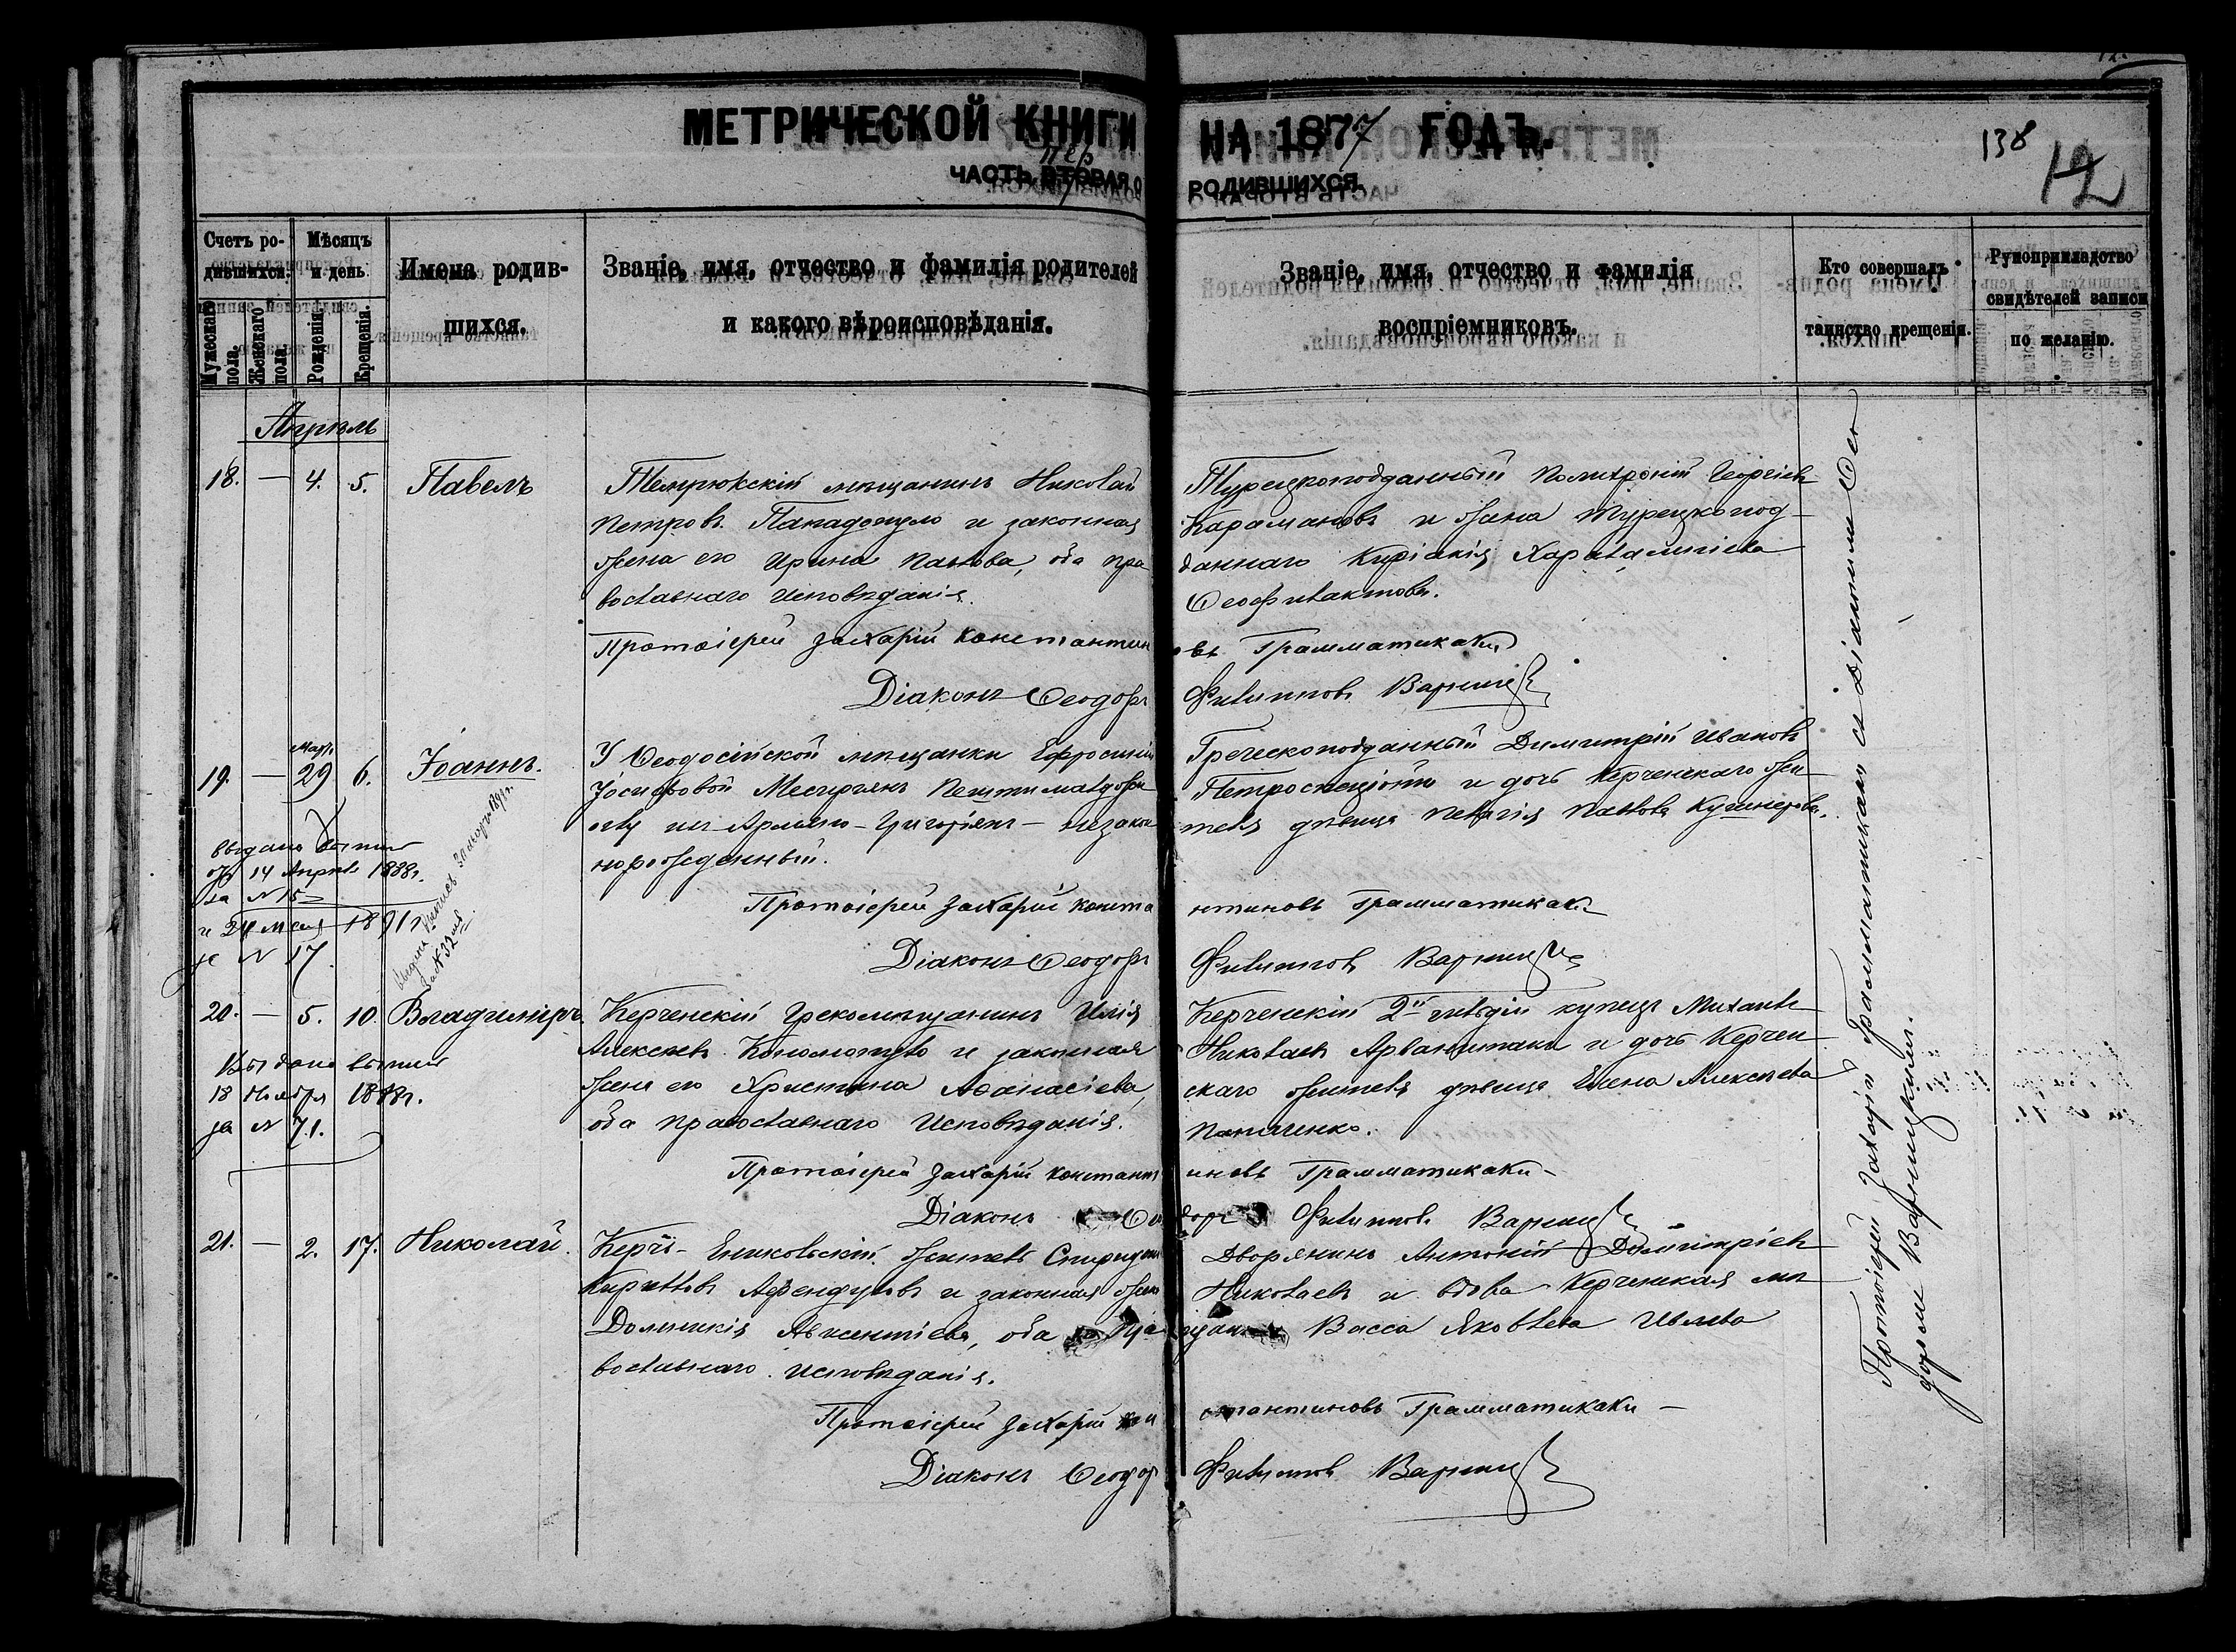 МЕТРИЧЕСКОЙ КНИГИ НА 1877 ГОДЪ.
ЧАСТЬ ВТОРАЯ О РОДИВШИХСЯ.
пер
138
12
Счетъ родившихся.
Мужескаго пола.
Женскаго пола.
Мѣсяцъ и день
Рожденія.
Крещенія.
Имена родившихся.
Званіе, имя, отчество и фамилія родителей
и какого вѣроисповѣданія.
Званіе, имя, отчество и фамилія
воспріемниковъ.
Кто совершалъ
таинство крещенія.
Рукоприкладство
свидѣтелей записи
по желанію.
Апрѣль
18. — 4. 5. Павелъ
Темрюкскій мѣщанинъ Николай
Петровъ Пападопуло и законная
жена его Ирина Павлова, оба пра
вославнаго исповѣданія.
Турецкоподданный Полихроній Георгіевъ
Карамановъ и жена турецкопод
даннаго Киріакія Харалампіева
Ѳеофилактова.
Протоіерей Захарій Константиновъ Грамматикаки
Діаконъ Ѳеодоръ Филипповъ
19. — Мар. 29 6. Іоаннъ.
У Ѳеодосійской мѣщанки Ефросиніи
Іосифовой
изъ Армяно-Григоріянъ — незакон
норожденный.
Греческоподданный Димитрій Ивановъ
и дочь Керченскаго жи
теля дѣвица Пелагія Павлова
выдано
14 Апрѣля 1888г.
за № 15
и 24 1891г
за № 17
за № 32
Протоіерей Захарій Константиновъ Грамматикаки
Діаконъ Ѳеодоръ Филипповъ
20. — 5. 10. Владиміръ.
Керченскій Грекомѣщанинъ Илія
Алексѣевъ и законная
жена его Христина Аѳанасіева,
оба православнаго Исповѣданія.
Керченскій 2й гильдіи купецъ Михаилъ
Николаевъ Арванитаки и дочь Керчен
скаго жителя дѣвица Елена Алексѣева
Выдано
18 Ноября 1888г.
за № 71.
Протоіерей Захарій Константиновъ Грамматикаки
Діаконъ Ѳеодоръ Филипповъ
21. — 2. 17. Николай.
Керчь-Еникольскій житель Спиридонъ
Кирилловъ Афендуловъ и законная жена
Домникія Авксентіева, оба пра
вославнаго исповѣданія.
Дворянинъ Антоній Димитріевъ
Николаевъ и вдова Керченская мѣ
щанка Васса Яковлева
Протоіерей Захарій Константиновъ Грамматикаки
Діаконъ Ѳеодоръ Филипповъ
Протоіерей Захарій Грамматикаки съ Діакономъ Ѳео
доромъ